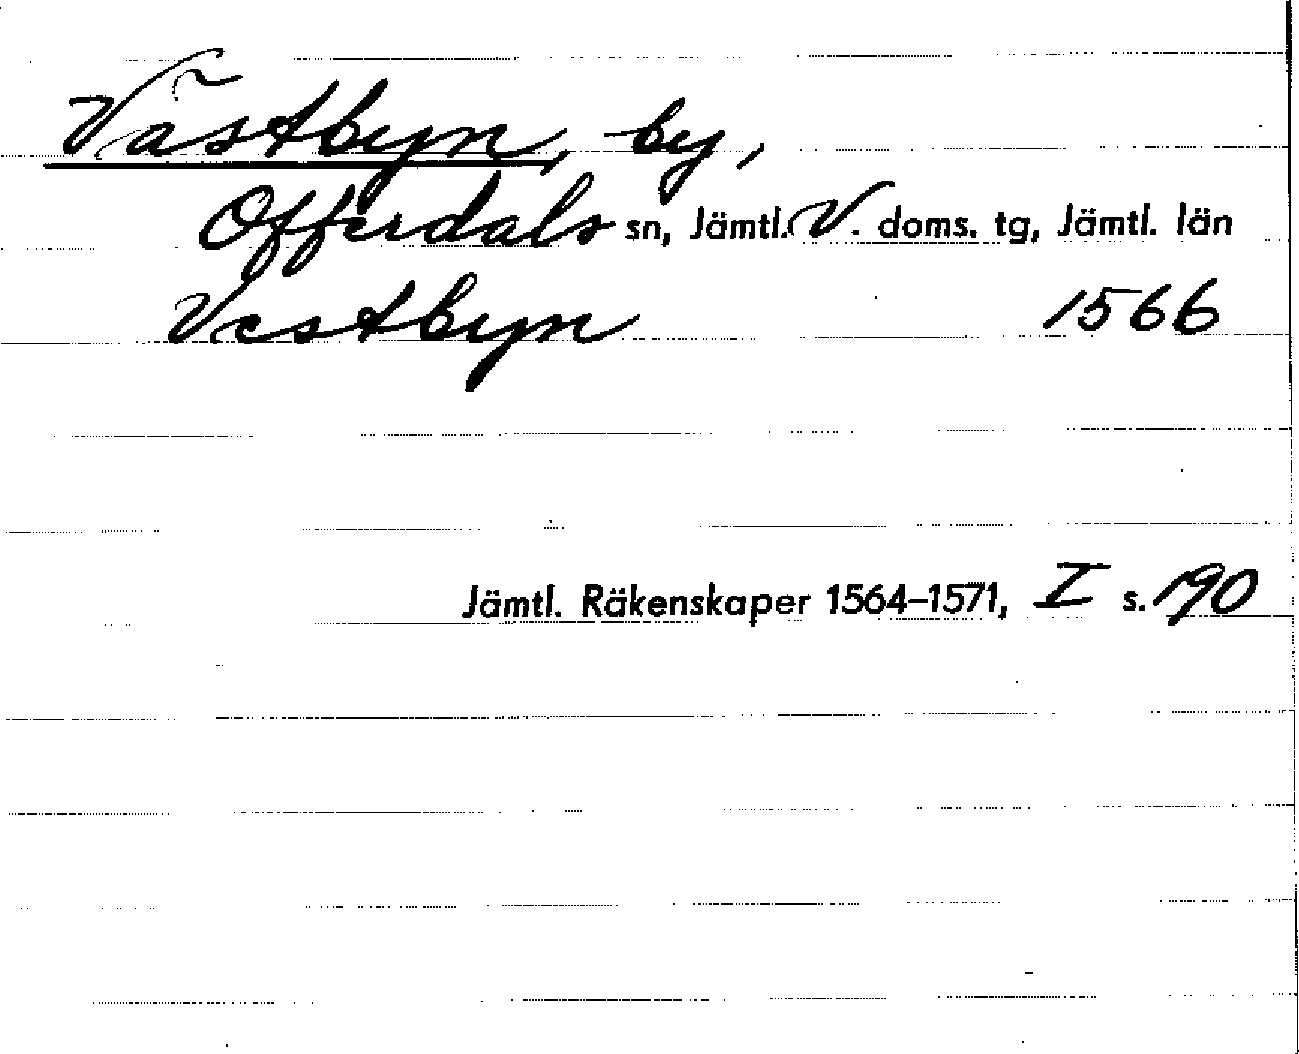 Västbyn, by,
Offerdals sn, Jämtl. V. doms. tg, Jämtl. län
Vestbyn 1566
Jämtl. Räkenskaper 1564-1571, I s. 190